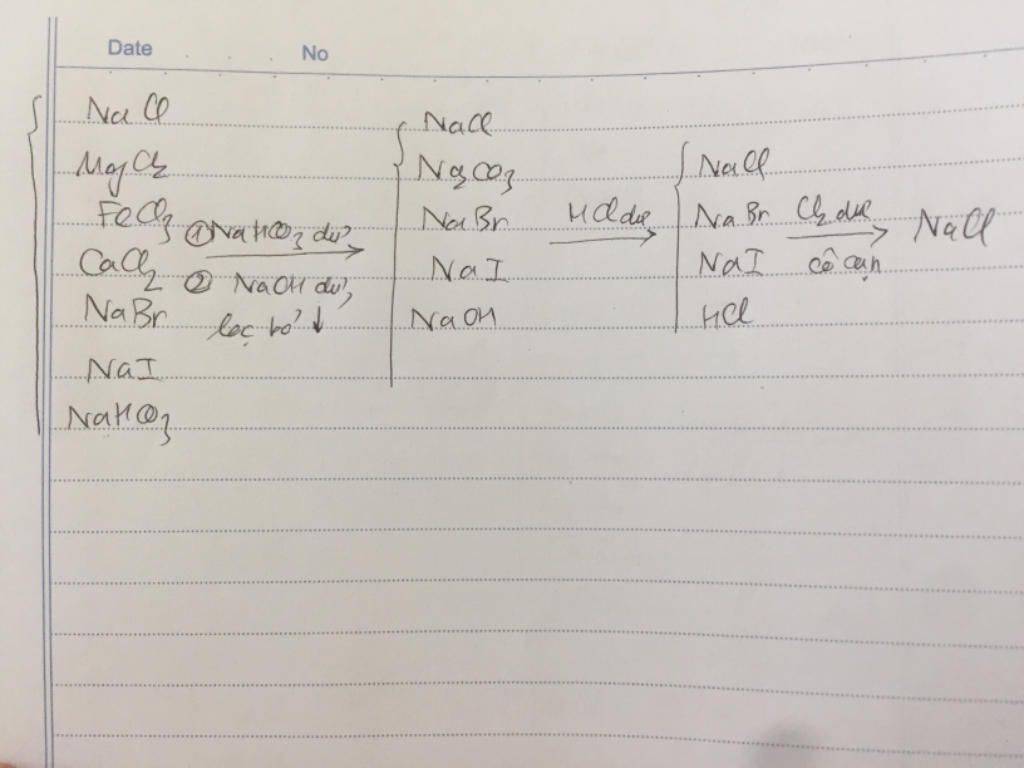 Date No
NaCl
MgCl2
FeCl3
CaCl2
NaBr
NaI
NaHCO3
① NaHCO3 dư,
② NaOH dư,
lọc bỏ ↓
NaCl
Na2CO3
NaBr
NaI
NaOH
HCl dư
NaCl
NaBr
NaI
HCl
Cl2 dư
cô cạn
NaCl